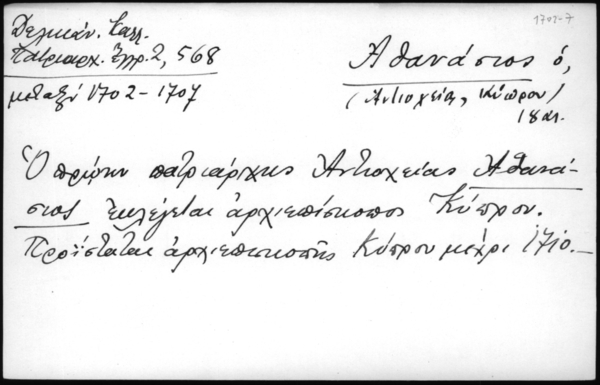 1702-7
Δελικάν. Καλλ.
Πατριαρχ. Ἔγγρ. 2, 568
μεταξύ 1702-1707
Ἀθανάσιος ὁ,
(Ἀντιοχείας, Κύπρου)
18 αι.
Ὁ πρώην πατριάρχης Ἀντιοχείας Ἀθανά-
σιος ἐκλέγεται ἀρχιεπίσκοπος Κύπρου.
Προΐσταται ἀρχιεπισκοπῆς Κύπρου μέχρι 1710.—